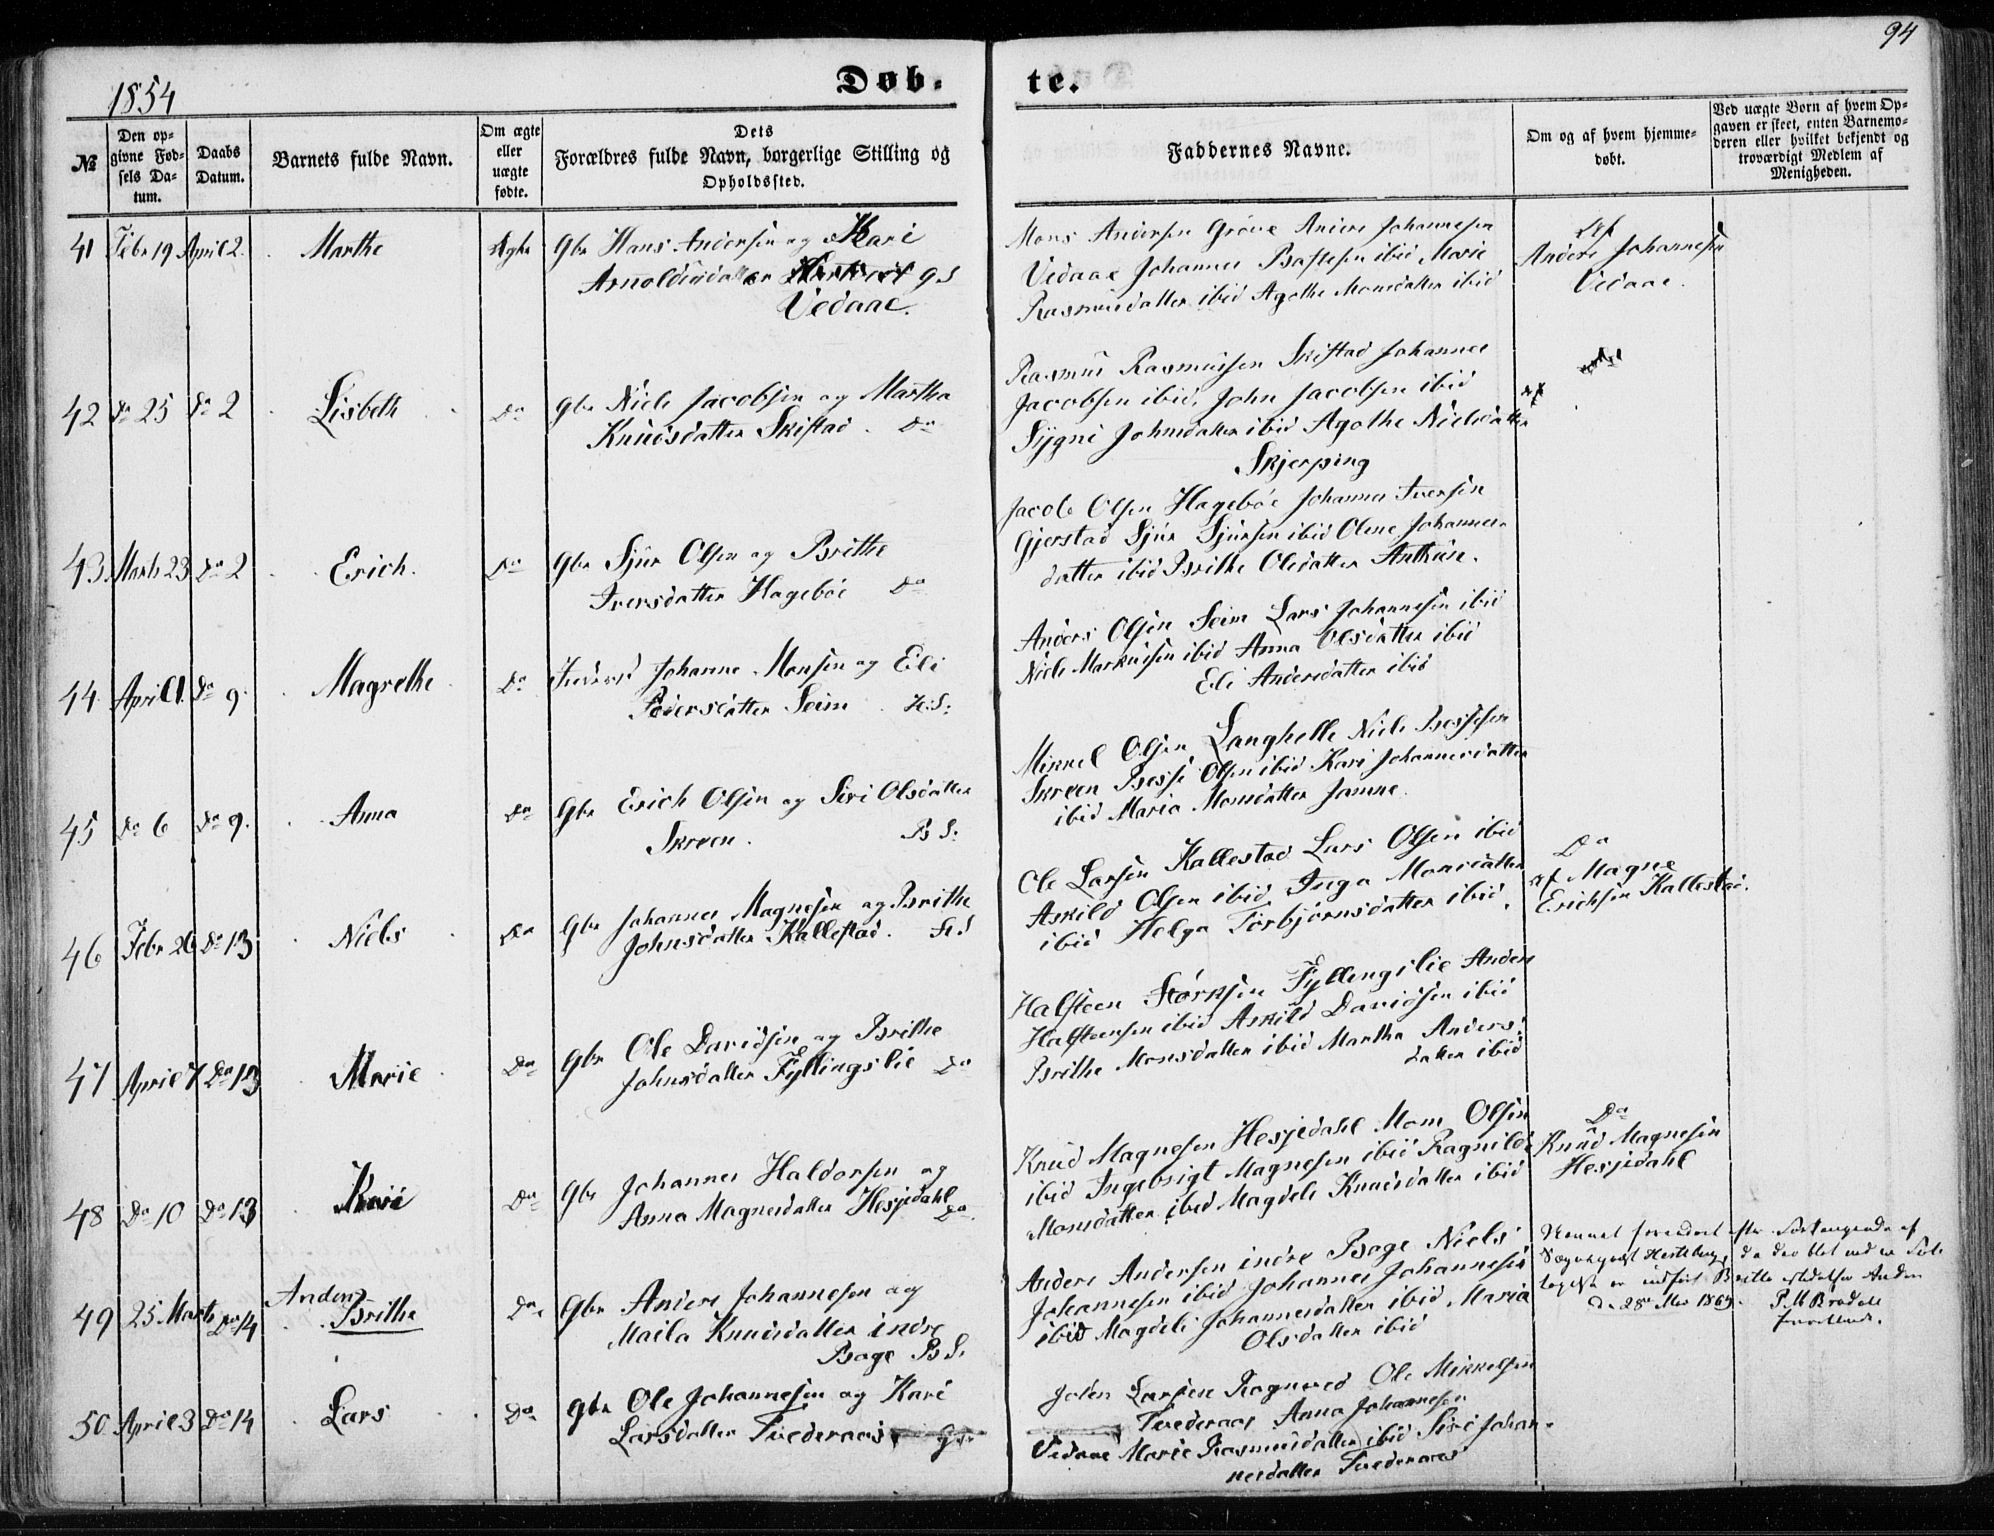 94
1854
Døb-
te.
№
Den op-
givne Fød-
sels Da-
tum.
Daabs
Datum.
Barnets fulde Navn.
Om ægte
eller
uægte
fødte.
Dets
Forældres fulde Navn, borgerlige Stilling og
Opholdssted.
Faddernes Navne.
Om og af hvem hjemme-
døbt.
Ved uægte Børn af hvem Op-
gaven er skeet, enten Barnemo-
deren eller hvilket bekjendt og
troværdigt Medlem af
Menigheden.
41 Febr 19 April 2. Marthe Ægte Gbr Hans Andersen og Kari
Arnoldsdatter G.S
Vedaae.
Mons Andersen Gröve Anders Johannesen
Vedaae Johannes Baftesen ibid Marie
Rasmusdatter ibid Agathe Monsdatter ibid
Anders Johannesen
Vedaae.
42 Do 25 Do 2 Lisbeth Do Gbr Niels Jacobsen og Martha
Knudsdatter Skiftad Do
Rasmus Rasmussen Skiftad Johannes
Jacobsen ibid. John Jacobsen ibid
Sygni Johnsdatter ibid Agathe Nielsdatter
Skjerping
43 Marts 23 Do 2 Erich. Do Gbr Sjur Olsen og Brithe
Iversdatter Hageböe Do
Jacob Olsen Hageböe Johannes Iversen
Gjerstad Sjur Sjursen ibid Olene Johannes-
datter ibid Brithe Olsdatter Anthun.
44 April 1. Do 9. Magrethe Do Inderst Johanne Monsen og Eli
Pedersdatter Seim H.S.
Anders Olsen Seim Lars Johannesen ibid
Niels Markusen ibid Anna Olsdatter ibid
Eli Andersdatter ibid
45 Do 6 Do 9. Anna Do Gbr Erich Olsen og Siri Olsdatter
Skreen. B S.
Mikkel Olsen Langhelle Niels Bessesen
Skreen Besse Olsen ibid Kari Johannesdatter
ibid Maria Monsdatter Jamne.
46 Febr 26 Do 13 Niels Do Gbr Johannes Magnesen og Brithe
Johnsdatter Kallestad. H.S
Ole Larsen Kallestad Lars Olsen ibid
Askild Olsen ibid, Inga Monsdatter
ibid Helga Torbjørnsdatter ibid.
Do
af Magne
Erichsen Kallestad.
47 April 7 Do 13 Marie Do Gbr Ole Davidsen og Brithe
Johnsdatter Fyllingslie Do
Halsteen Störksen Fyllengslie Anders
Halsteensen ibid Askild Davidsen ibid
Brithe Monsdatter ibid Martha Anders-
datter ibid
48 Do 10 Do 13 Kari Do Gbr Johannes Haldorsen og
Anna Magnesdatter Hesjedahl Do.
Knud Magnesen Hesjedahl Mons Olsen
ibid Ingebrigt Magnesen ibid Ragnilde
Monsdatter ibid Magdeli Knudsdatter ibid
Do
Knud Magnesen
Hesjedahl
49 25 Marts Do 14 Anden
Brithe Do. Gbr Anders Johannesen og
Maila Knudsdatter indre
Boge B S.
Anders Andersen indre Boge Niels
Johannesen ibid Johannes Johannesen
ibid Magdeli Johannesdatter ibid Maria
Olsdatter ibid
Navnet forandret efter
Sognepræst Hertzberg, da
er indført Brithe istedetfor Anden
50 April 3 Do 14 Lars Do Gbr Ole Johannesen og Kari
Larsdatter Tvederaas
John Larsen Ragnved Ole Mikkelsen
Tvederaas Anna Johannesen
Vedaae Marie Rasmusdatter ibid Siri Johan-
nesdatter Tvederaas